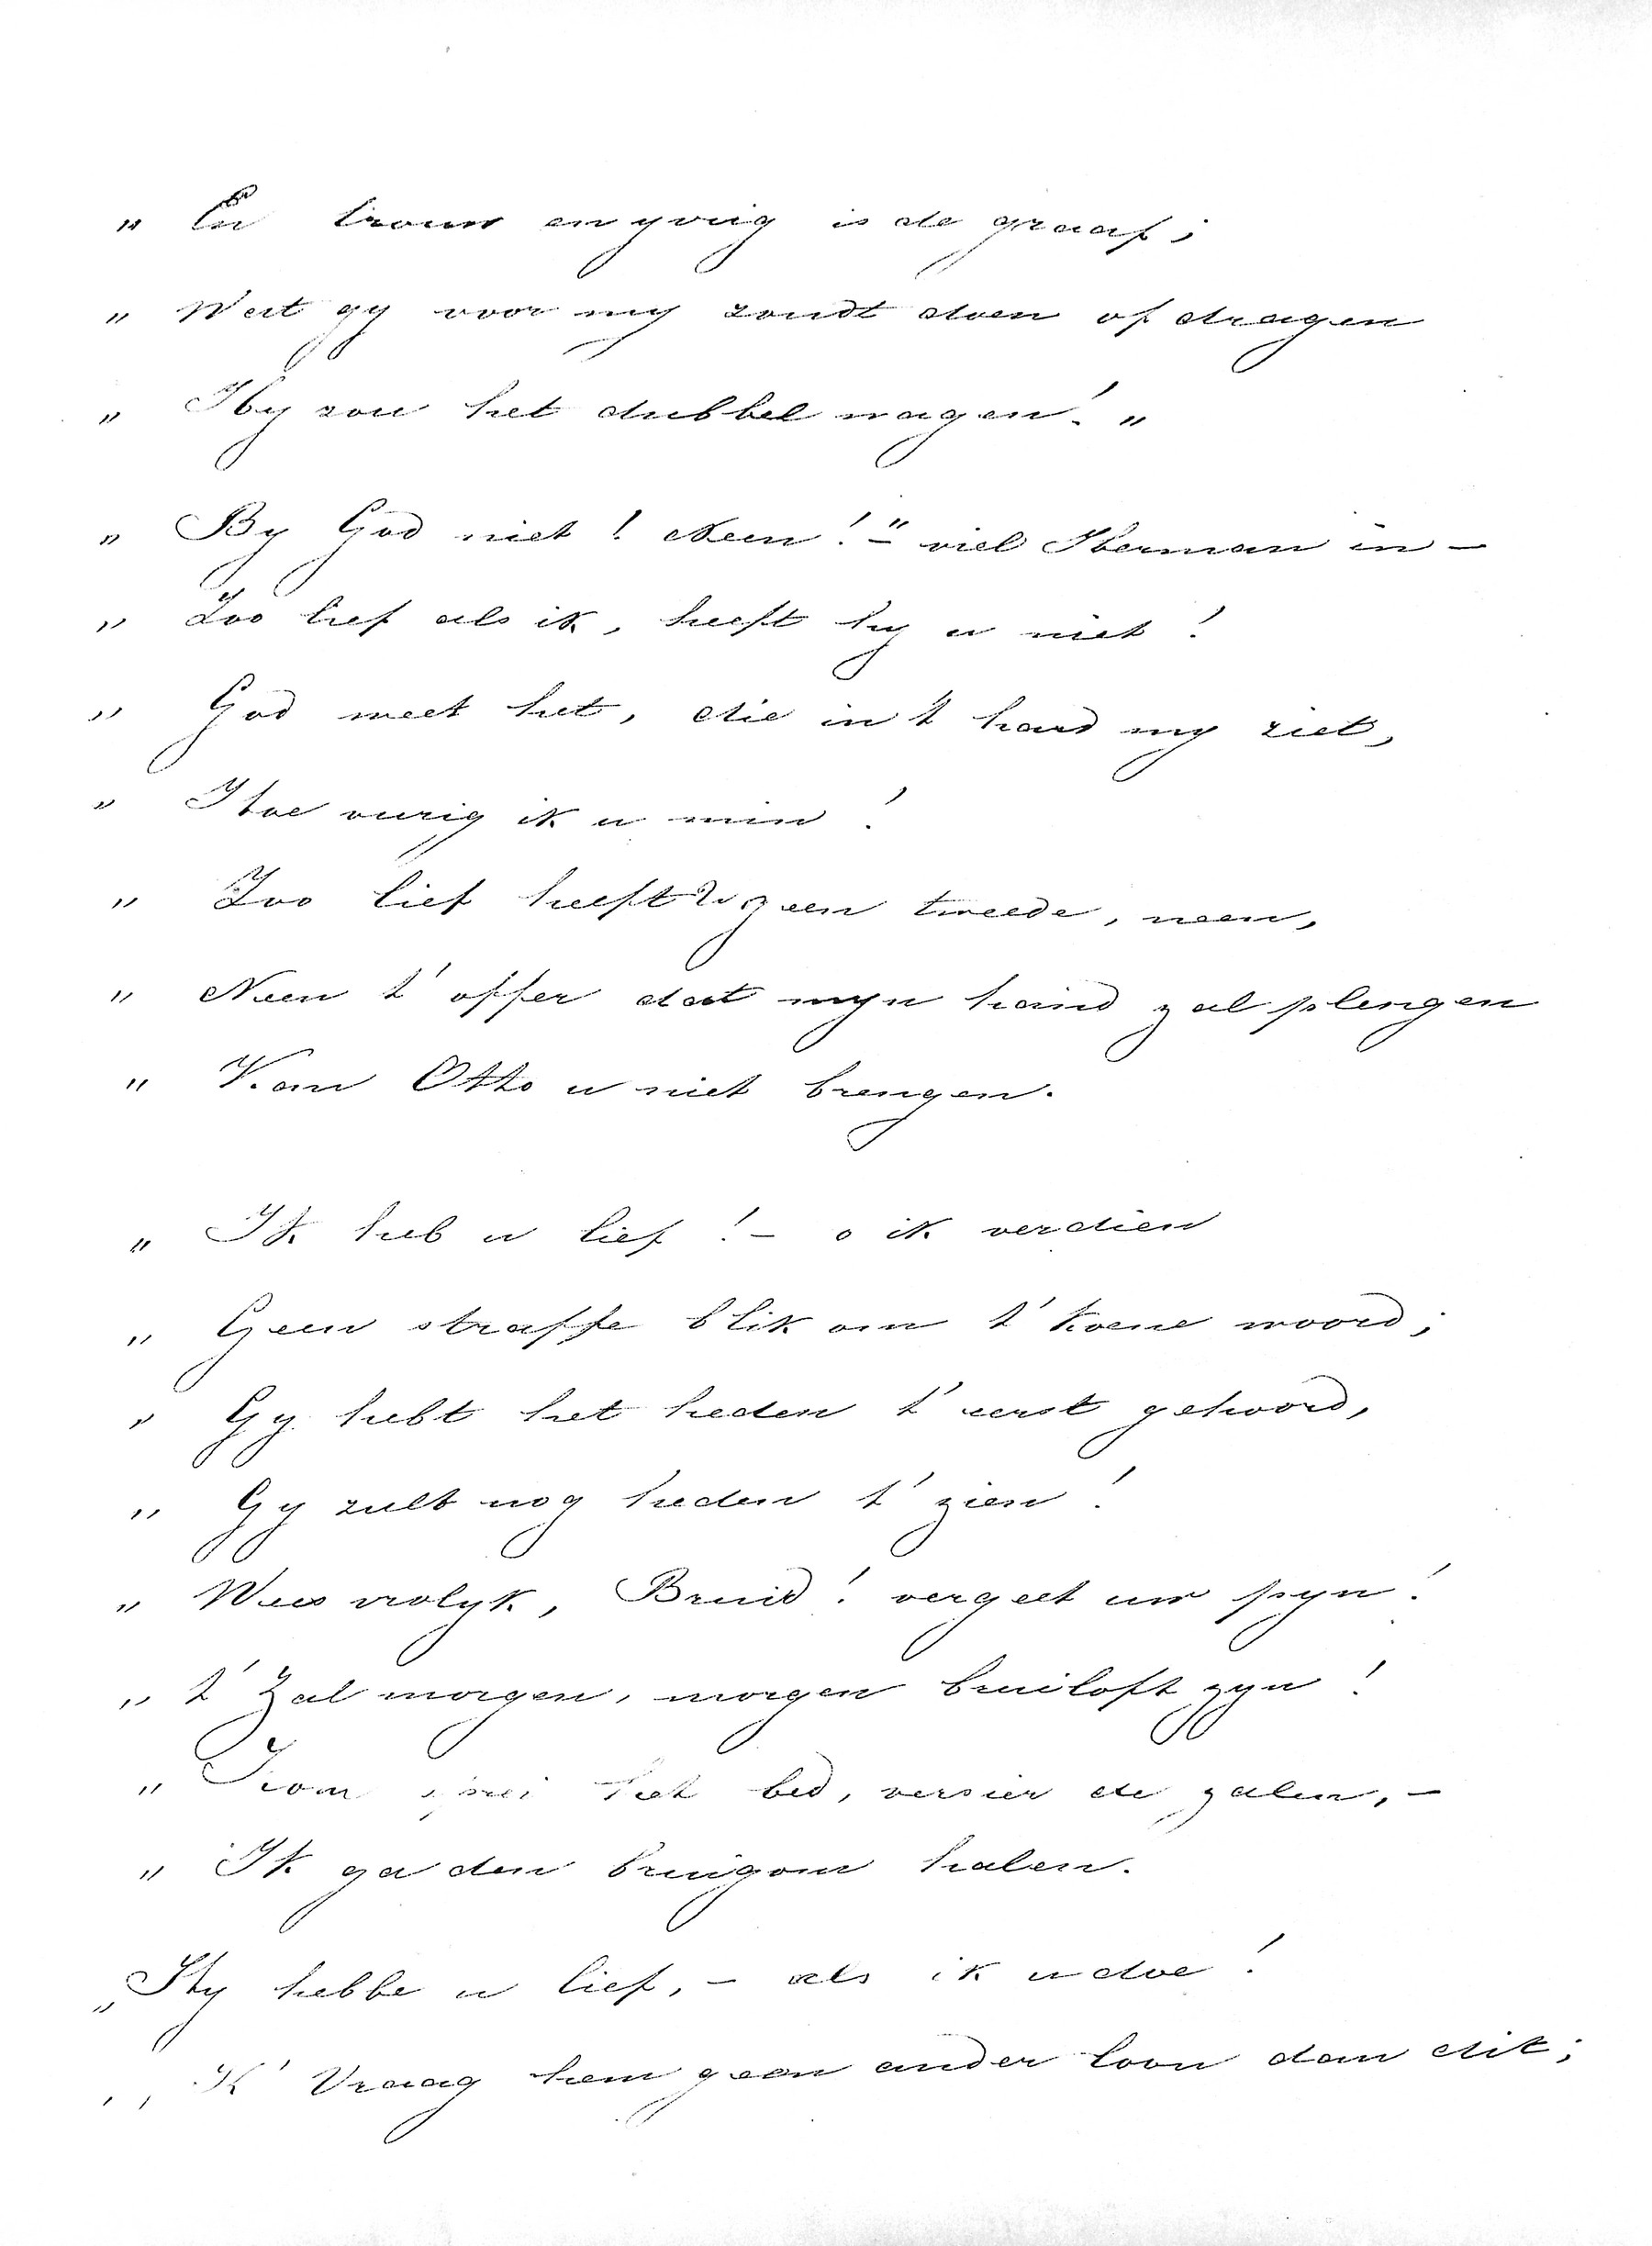 „ En trouw en yvrig is de graaf;
„ Wat gy voor my zoudt doen of dragen
„ Hy zou het dubbel wagen! „
„ By God niet! Neen!" – viel Herman in –
„ Zoo lief als ik, heeft hy u niet!
„ God weet het, die in 't hard my ziet,
„ Hoe vurig ik u min!
„ Zoo lief heeft U geen tweede, neen,
„ Neen t' offer dat myn hand zal plengen
„ Kan Otto u niet brengen.
„ Ik heb u lief! – o ik verdien
„ Geen straffe blik om t' koene woord;
„ Gy hebt het heden t' eerst gehoord,
„ Gy zult nog heden t' zien!
„ Wees vrolyk, Bruid! vergeet uw pyn!
„ t' Zal morgen, morgen bruiloft zyn!
„ Kom sprei het bed, versier de zalen, –
„ Ik ga den bruigom halen.
„ Hy hebbe u lief, – als ik u doe!
„ K' Vraag hem geen ander loon dan dit;